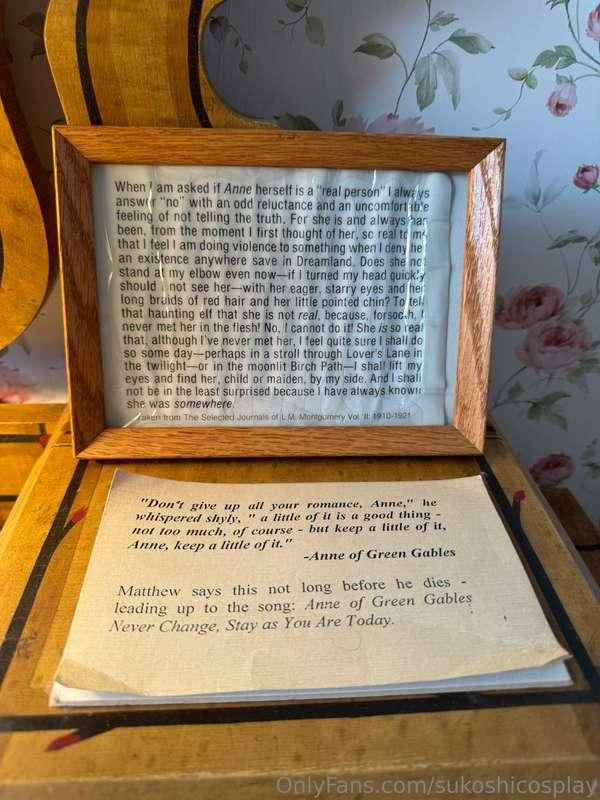 When I am asked if Anne herself is a "real person" I always
answer "no" with an odd reluctance and an uncomfortable
feeling of not telling the truth. For she is and always has
been, from the moment I first thought of her, so real to me
that I feel I am doing violence to something when I deny her
an existence anywhere save in Dreamland. Does she not
stand at my elbow even now—if I turned my head quickly
should I not see her—with her eager, starry eyes and her
long braids of red hair and her little pointed chin? To tell
that haunting elf that she is not real, because, forsooth, I
never met her in the flesh! No, I cannot do it! She is so real
that, although I've never met her, I feel quite sure I shall do
so some day—perhaps in a stroll through Lover's Lane in
the twilight—or in the moonlit Birch Path—I shall lift my
eyes and find her, child or maiden, by my side. And I shall
not be in the least surprised because I have always known
she was somewhere.
Taken from The Selected Journals of L.M. Montgomery Vol. II: 1910-1921
"Don't give up all your romance, Anne," he
whispered shyly, " a little of it is a good thing -
not too much, of course - but keep a little of it,
Anne, keep a little of it."
-Anne of Green Gables
Matthew says this not long before he dies -
leading up to the song: Anne of Green Gables
Never Change, Stay as You Are Today.
OnlyFans.com/sukoshicosplay